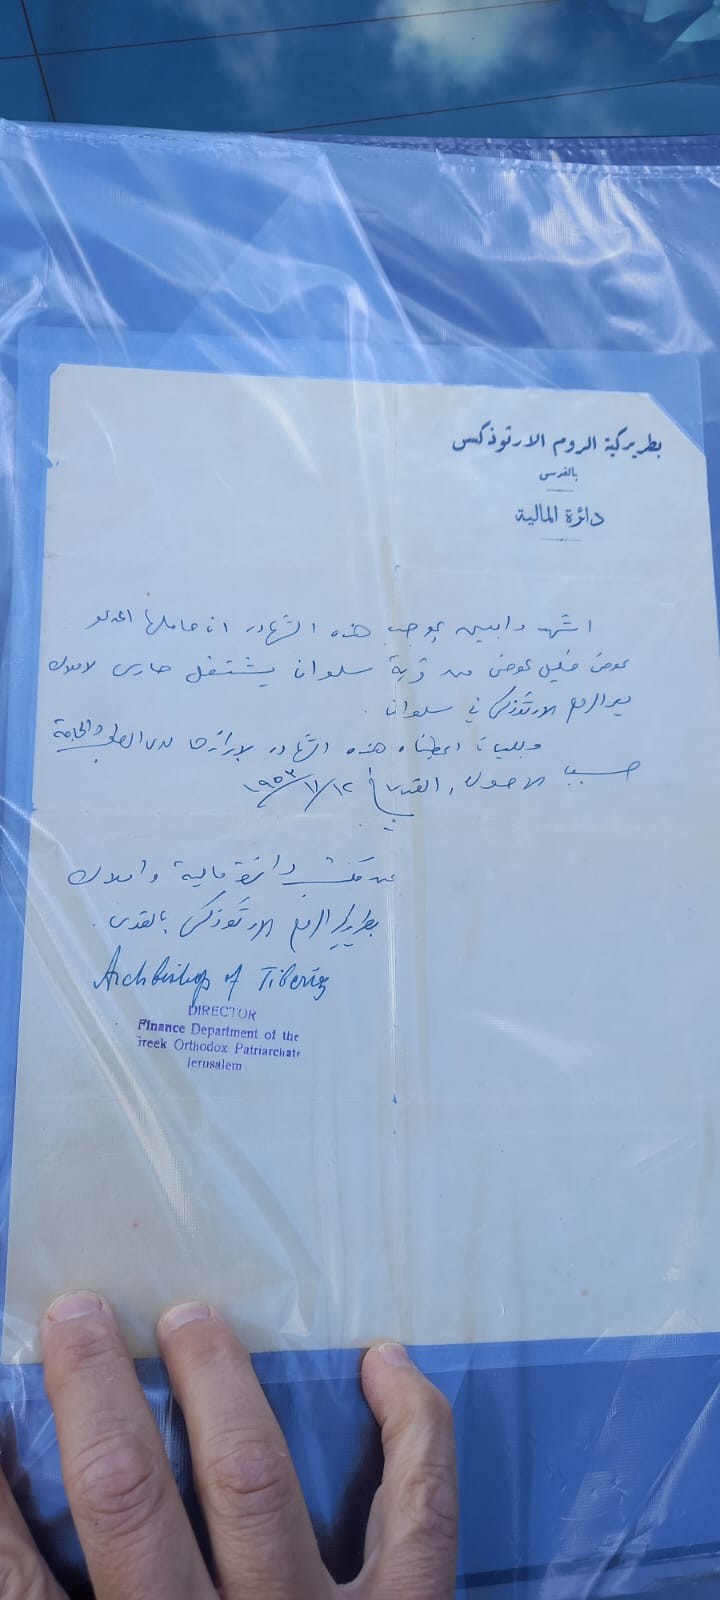 بطريركية الروم الارثوذكس
بالقدس
دائرة المالية
اشهد وابين بموجب هذه الشهادة ان حاملها المدعو
عوض خليل عوض من قرية سلوان يشتغل حارس لاملاك
دير الروم الارثوذكس في سلوان .
وبيانا اعطيناه هذه الشهادة لابرازها لدى الطلب والحاجة
حسب الاصول . القدس في ١٢/١١/١٩٥٣
عن مكتب دائرة مالية واملاك
بطريركية الروم الارثوذكس بالقدس .
Archbishop of Tiberias
DIRECTOR
Finance Department of the
Greek Orthodox Patriarchate
Jerusalem